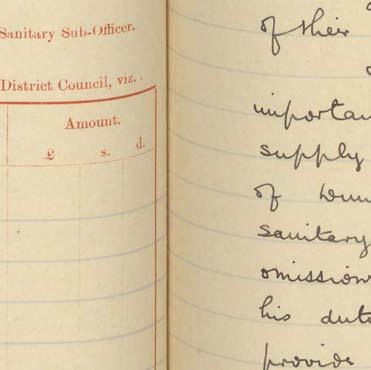 Sanitary Sub-Officer.
District Council, viz. .
Amount.
£ s. d.
of their
importan
supply
of Dun
sanitary
omission
his dut
provide